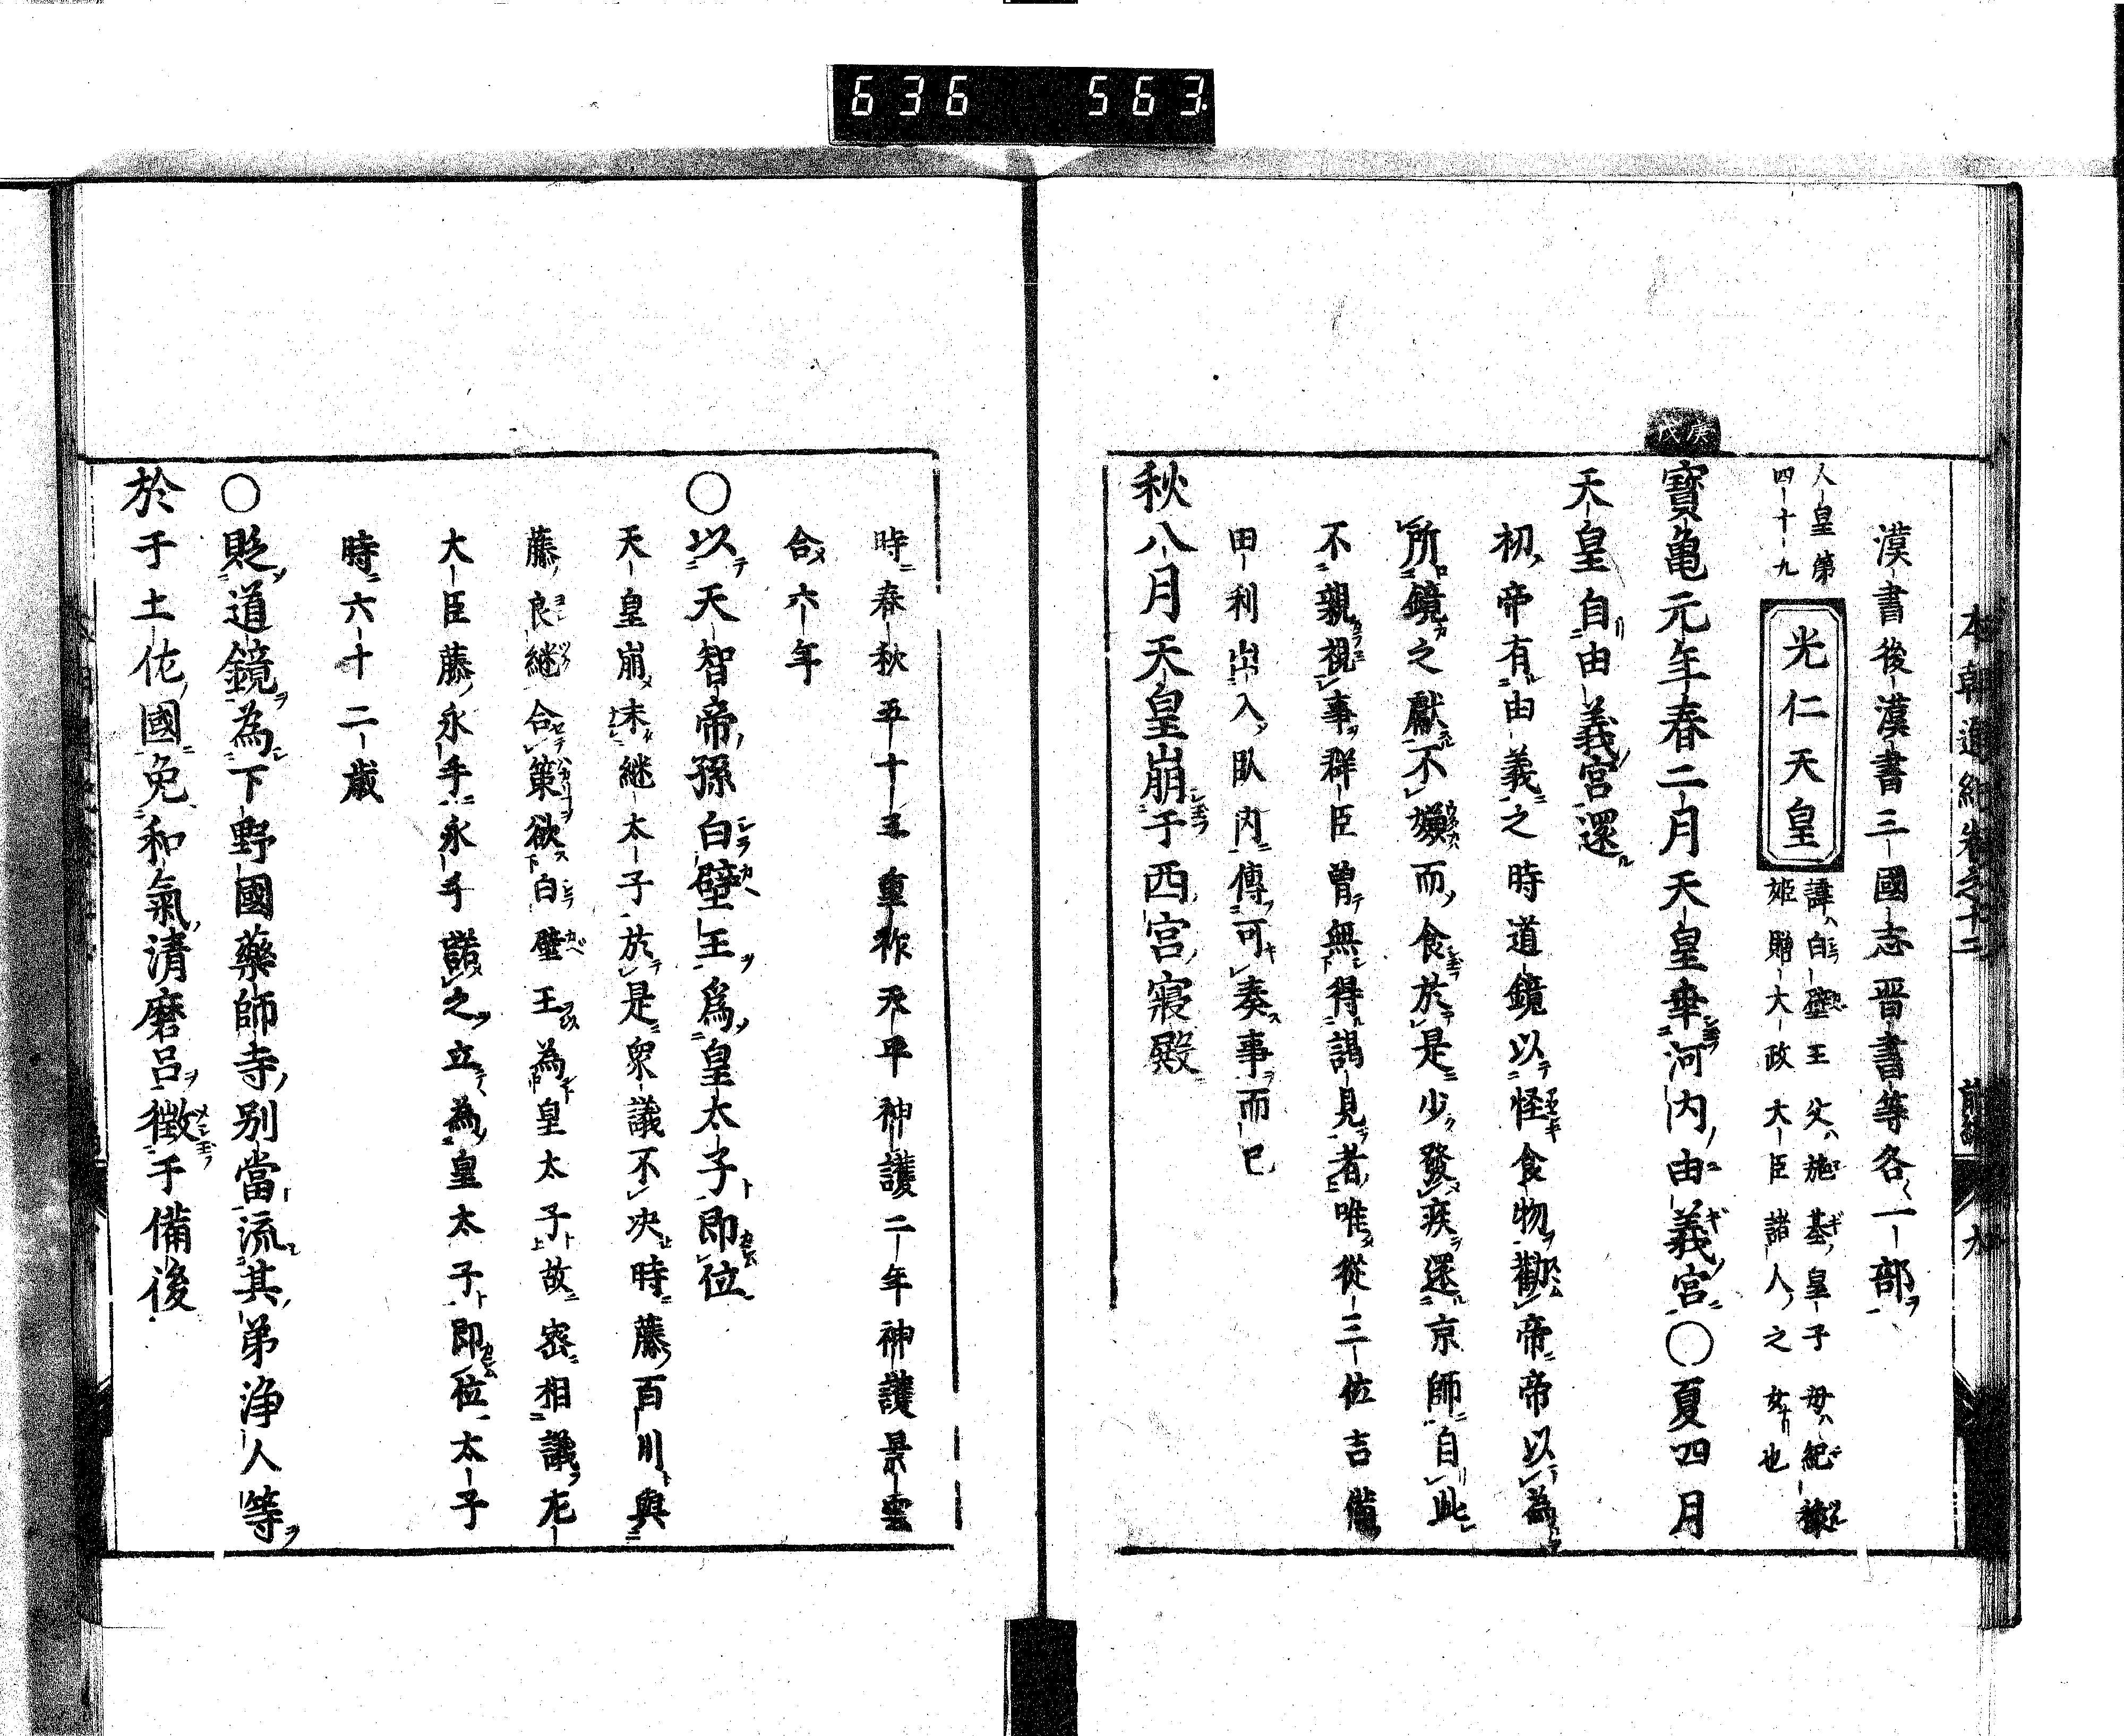 636 563
本朝通紀卷之十二 前編 九
漢書後漢書三國志晋書等各一部
人皇第四十九
光仁天皇
諱白壁王父施基皇子母紀橡
姫贈大政大臣諸人之女也
庚戌
寶亀元年春二月天皇幸河内由義宮○夏四月
天皇自由義宮還
初帝有由義之時道鏡以怪食物勸帝帝以為
所鏡之獻不嫌而食於是少發疾還京師自此
不親視事群臣曾無得謁見者唯從三位吉備
田利出入臥内傳可奏事而已
秋八月天皇崩于西宮寢殿
時春秋五十三重祚天平神護二年神護景雲
合六年
○以天智帝孫白壁王爲皇太子即位
天皇崩未継太子於是衆議不决時藤百川與
藤良継合策欲白壁王為皇太子故密相議左
大臣藤永手永手諾之立為皇太子即位太子
時六十二歳
○貶道鏡為下野國藥師寺別當流其弟浄人等
於于土佐國免和氣清麿呂徵于備後